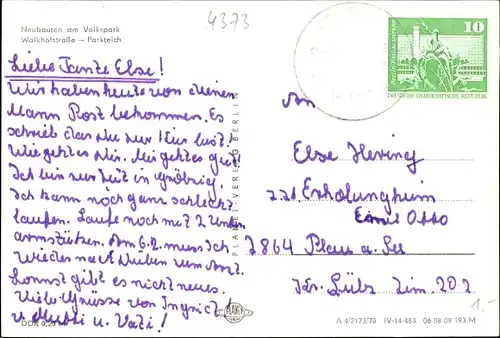 4373
Neubauten am Volkspark
Walkhofstraße — Parkteich
Liebe Tante Else!
Wir haben heute von deinem
Mann Post bekommen. Es
schrieb das du zur Kur bist.
Wie geht es dir. Mir geht es gut.
Ich bin zur Zeit in
Ich kann noch ganz schlecht
laufen. Laufe noch mit 2 Unter
armstützen. Am 6.2. muss ich
wieder nach Düben zum Arzt.
Sonnst gibt es nichts neues.
Viele Grüsse von Ingrid
u. Mutti u. Vati!
DDR 0,20 M
PLANET-VERLAG BERLIN
PLANET
10
DEUTSCHE DEMOKRATISCHE REPUBLIK
An
Else Hering
z.Zt. Erholungheim
Emil Otto
2864 Plau a. See
Kr. Lübz Zim. 202
1.-
A 4/2173/73 IV-14-483 06 08 09 193 M